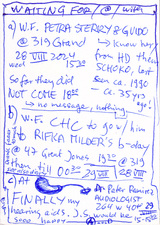 WAITING FOR/(@)/with
a) W.F. PETRA STERRY & GUIDO
@ 319 Grand → know her
28 VIII 2024 from HD with
week 15:30 SCHOKO, last
So far they did seen ca. 1990
NOT COME 18:00 – ca. 35 y ago.
→ no message, nothing
b) W.F. CHC to go w/ him
to RIFKA MILDER's b-day
@ 47 Great Jones 15:30 @ 319
then till 00:30 29 VIII 28 VIII
c) At @ Peter Ramirez
FINALLY my AUDIOLOGIST
hearing aids, J.S. would be
sooo happy